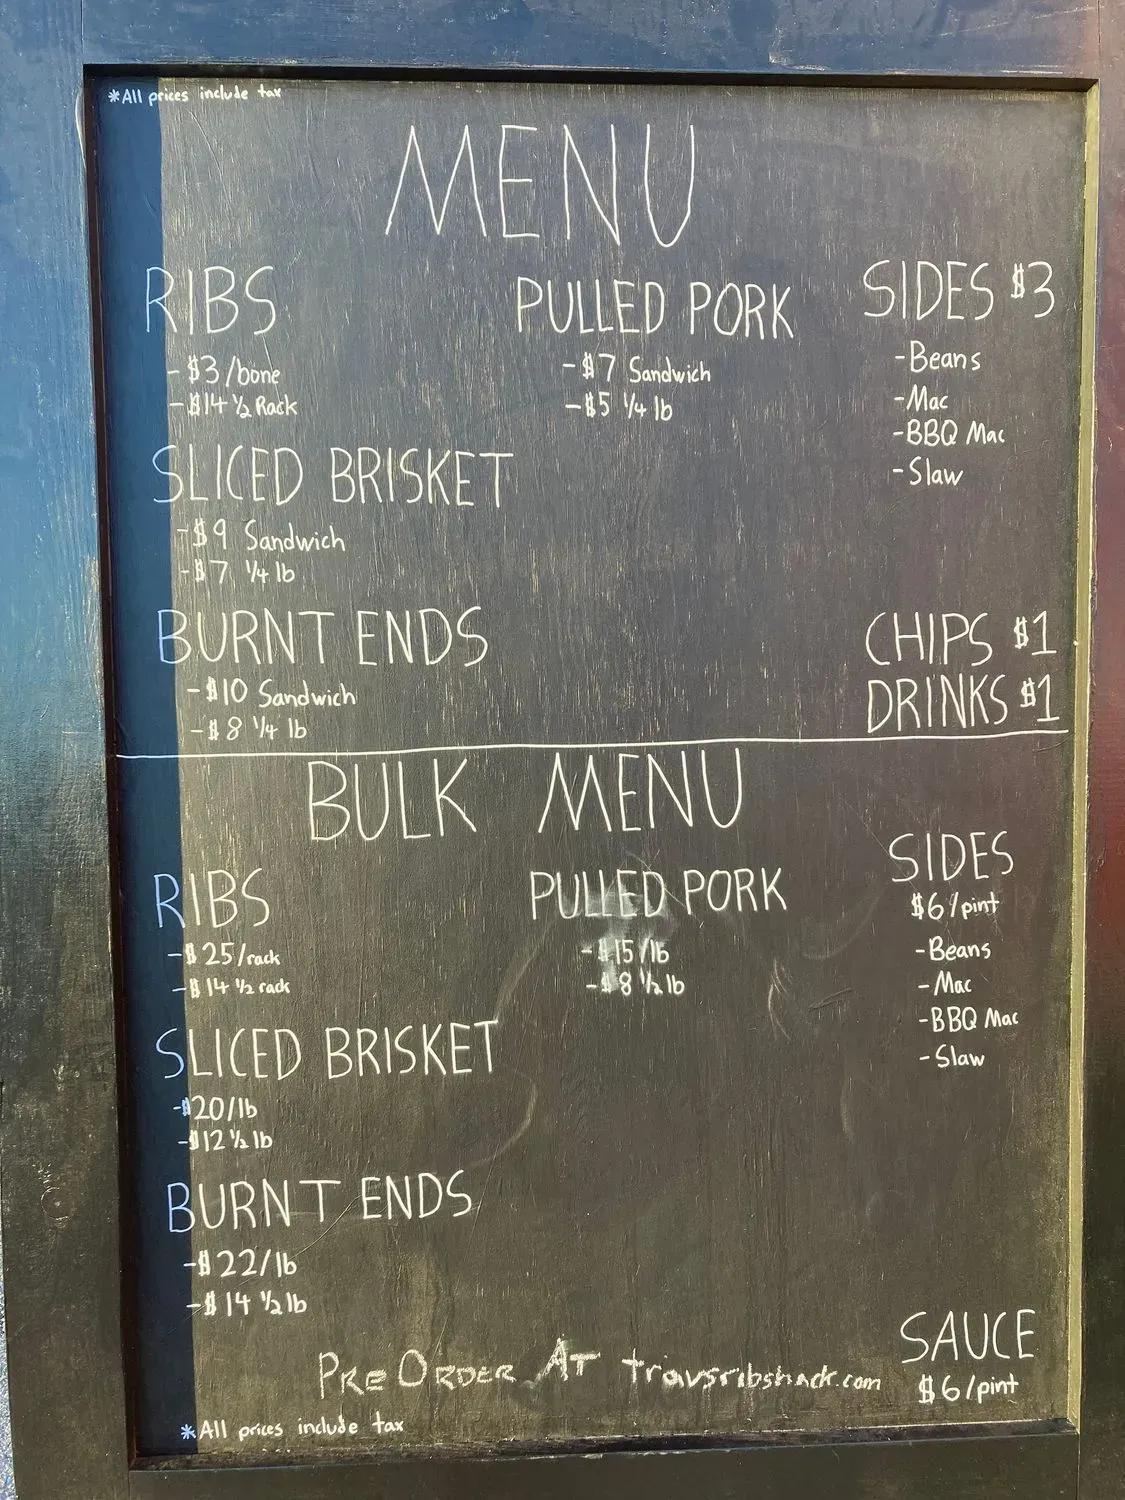 *All prices include tax
MENU
RIBS
-$3/bone
-$14 ½ Rack
SLICED BRISKET
-$9 Sandwich
-$7 ¼ lb
BURNT ENDS
-$10 Sandwich
-$8 ¼ lb
PULLED PORK
-$7 Sandwich
-$5 ¼ lb
SIDES $3
-Beans
-Mac
-BBQ Mac
-Slaw
CHIPS $1
DRINKS $1
BULK MENU
RIBS
-$25/rack
-$14 ½ rack
SLICED BRISKET
-$20/lb
-$12 ½ lb
BURNT ENDS
-$22/lb
-$14 ½ lb
PULLED PORK
-$15/lb
-$8 ½ lb
SIDES
$6/pint
-Beans
-Mac
-BBQ Mac
-Slaw
SAUCE
$6/pint
PRE ORDER AT travsribshack.com
*All prices include tax